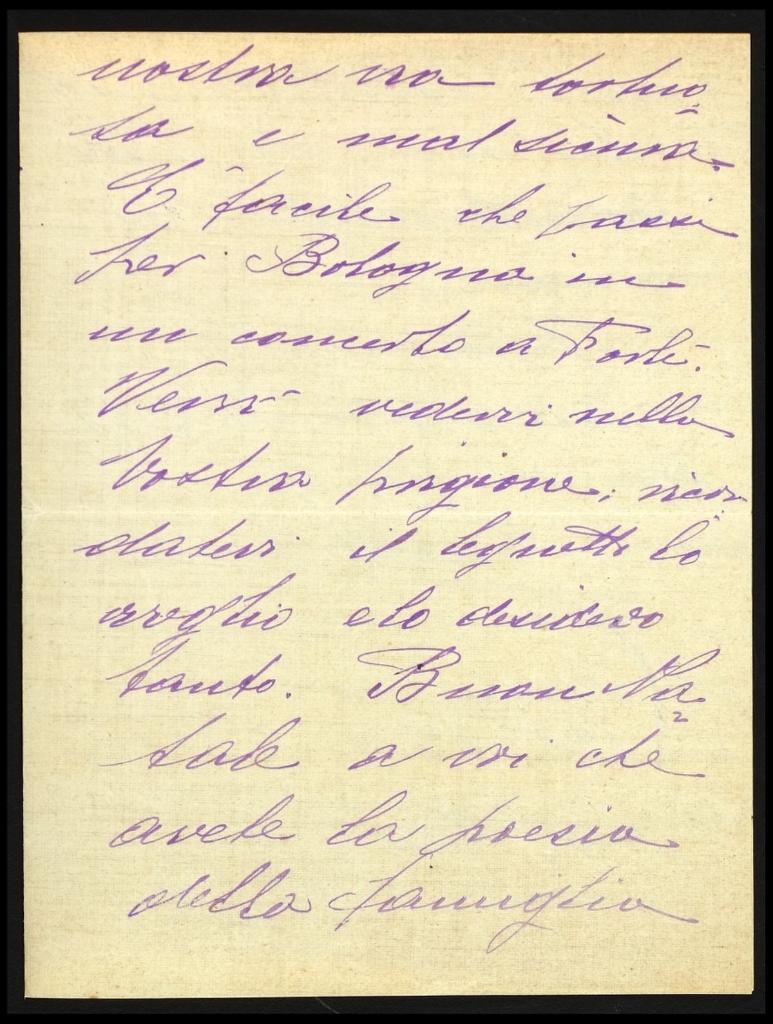 nostra via tortuo=
sa e mal sicura.=
E' facile che passi
per Bologna in
un concerto a Forlì.
Verrò vedervi nella
Vostra prigione; ricor
datevi il legnetto lo
voglio e lo desidero
tanto. Buon Na=
tale a voi che
avete la poesia
della famiglia